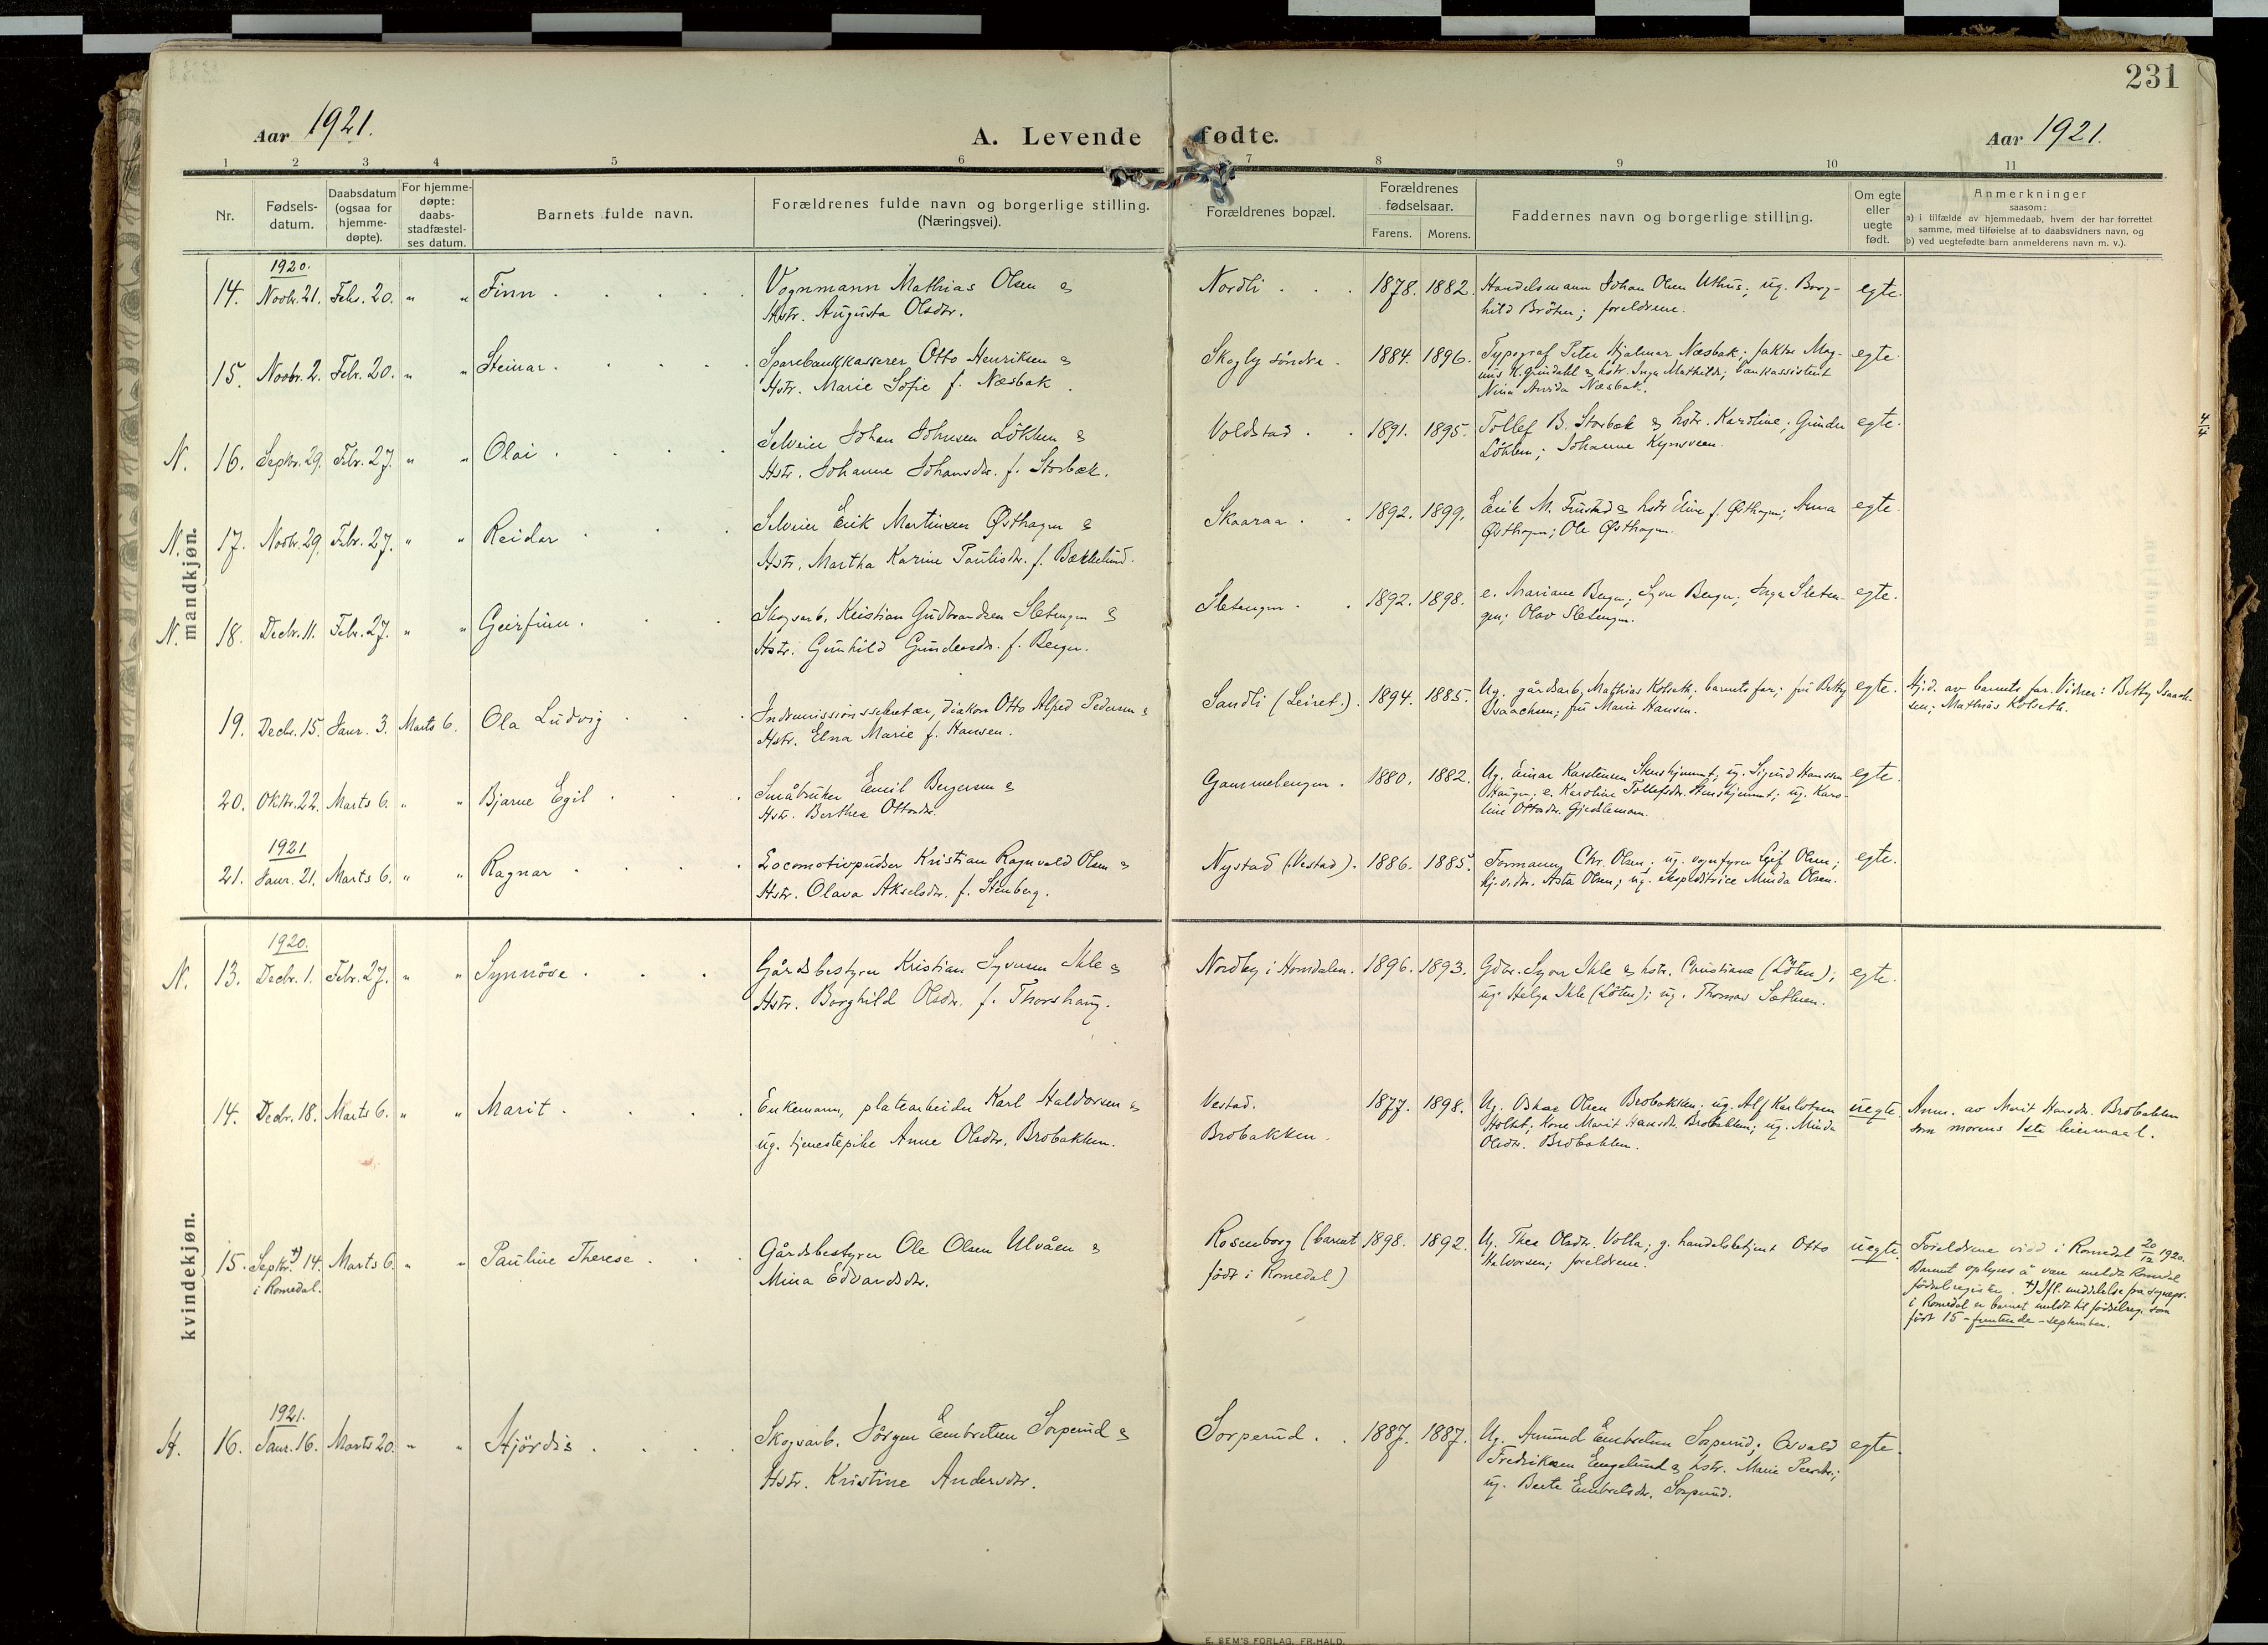 231
Aar 1921.
A. Levende fødte.
Aar 1921.
1 2 3 4 5 6 7 8 9 10 11
Nr.
Fødsels-
datum.
Daabsdatum
(ogsaa for
hjemme-
døpte).
For hjemme-
døpte:
daabs-
stadfæstel-
ses datum.
Barnets fulde navn.
Forældrenes fulde navn og borgerlige stilling.
(Næringsvei).
Forældrenes bopæl.
Forældrenes
fødselsaar.
Farens. Morens.
Faddernes navn og borgerlige stilling.
Om egte
eller
uegte
født.
Anmerkninger
saasom:
a) i tilfælde av hjemmedaab, hvem der har forrettet
samme, med tilføielse af to daabsvidners navn, og
b) ved uegtefødte barn anmelderens navn m. v.).
mandkjøn.
1920.
14. Novbr. 21. Febr. 20. " " Finn . Vognmann Mathias Olsen &
Hstr. Augusta Olsdtr.
Nordli . 1878. 1882. Handelsmann Johan Olsen Uthus; ug. Borg-
hild Bråten; foreldrene.
egte.
15. Novbr. 2. Febr. 20. " " Steinar . Sparebankkasserer Otto Henriksen &
Hstr. Marie Sofie f. Næsbak.
Skogly søndre . 1884. 1896. Typograf Peter Hjalmar Næsbak; faktor Mag-
nus K. Grundahl & hstr. Inga Mathilde; bankassistent
Nina Næsbak.
egte.
N. 16. Septbr. 29. Febr. 27. " " Olai . Selveier Johan Johnsen Løkken &
Hstr. Johanne Johansdtr. f. Storbæk.
Voldstad . 1891. 1895. Tollef B. Storbæk & hstr. Karoline; Gunder
Løkken; Johanne Kynsveen.
egte.
4/4
N. 17. Novbr. 29. Febr. 27. " " Reidar . Selveier Erik Martinsen Østhagen &
Hstr. Martha Karine Paulisdtr. f. Bækkelund.
Skaaraa . 1892. 1899. Erik M. & hstr. Eline f. Østhagen; Anna
Østhagen; Ole Østhagen.
egte.
N. 18. Decbr. 11. Febr. 27. " " Geirfinn . Skogsarb. Kristian Gudbrandsen Sletengen &
Hstr. Gunhild Gundersdtr. f. Berger.
Sletengen . 1892. 1898. e. Mariane Berger; Syver Berger; Inga Sleten-
gen; Olav Sletengen.
egte.
19. Decbr. 15. Janr. 3. Marts 6. Ola Ludvig . Indremissionssekretær, diakon Otto Alfred Pedersen &
Hstr. Elna Marie f. Hansen.
Sandli (Leiret.) . 1894. 1885. Ug. gårdsarb. Mathias Kolseth; barnets far; fru Betty
Isaachsen; fru Marie Hansen.
egte. Hj.d. av barnets far. Vidner: Betty Isaach-
sen; Mathias Kolseth.
20. Oktbr. 22. Marts 6. " " Bjarne Egil . Småbruker Emil Bergersen &
Hstr. Berthea Ottosdtr.
Gammelengen . 1880. 1882. Ug. Einar Karstensen Stenshjemmet; ug. Sigurd Hanssen
Haugen; e. Karoline Tollefsdtr. Stenshjemmet; ug. Karo-
line Ottosdtr.
egte.
1921
21. Janr. 21. Marts 6. " " Ragnar . Locomotivpudser Kristian Ragnvald Olsen &
Hstr. Olava Akselsdtr. f. Stenberg.
Nystad (Vestad) . 1886. 1885. Formann Chr. Olsen; ug. vognfyrer Leif Olsen;
hj.v.dtr. Asta Olsen; ug. ekspeditrice Minda Olsen.
egte.
kvindekjøn.
1920.
N. 13. Decbr. 1. Febr. 27. " " Synnöve . Gårdsbestyrer Kristian Syversen Ihle &
Hstr. Borghild Olsdtr. f. Thorshaug.
Nordby i Horndalen. 1896. 1893. Gdbr. Syver Ihle & hstr. Christiane (Løten);
ug. Helga Ihle (Løten); ug. Thomas Sæthren.
egte.
14. Decbr. 18. Marts 6. " " Marit . Enkemann, platearbeider Karl Haldorsen &
ug. tjenestepike Anne Olsdtr. Brobakken.
Vestad.
Brobakken.
1877. 1898. Ug. Oskar Olsen Brobakken; ug. Alf Karlstrøm
Holst; Kone Marit Hansdtr. Brobakken; ug. Minda
Olsdtr. Brobakken.
uegte. Anm. av Marit Hansdtr. Brobakken
som morens 1ste leiermaal.
15. Septbr. +) 14. Marts 6. " " Pauline Therese . Gårdsbestyrer Ole Olsen Ulvåen &
i Romedal.
Mina Edvardsdtr.
Rosenborg (barnet
födt i Romedal)
1898. 1892. Ug. Thea Olsdtr. Volla; g. handelsbetjent Otto
Halvorsen; foreldrene.
uegte. Foreldrene viet i Romedal 20/12 1920.
Barnet oplyses å være meldt Romedal
födselregister. +) Ifl. meddelelse fra sogнepr.
i Romedal er barnet meldt til födselreg. som
födt 15 - femtende - september.
1921.
H. 16. Janr. 16. Marts 20. " " Hjördis . Skogsarb. Jörgen Embretsen Sorperud &
Hstr. Kristine Andersdtr.
Sorperud . 1887. 1887. Ug. Amund Embretsen Sorperud; Osvald
Fredriksen Engelund & hstr. Marie;
ug. Beate Embretsdtr. Sorperud.
egte.
E. SEM'S FORLAG, FR.HALD.